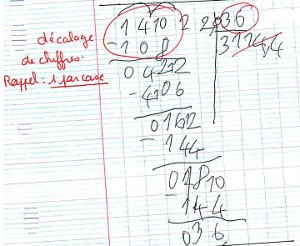 1 4 10 2 2 36
décalage
- 1 0 8
de chiffres
0 4 2 2
Rappel : 1 par case
- 4 0 6
0 1 6 2
- 1 4 4
0 1 8 10
- 1 4 4
0 3 6